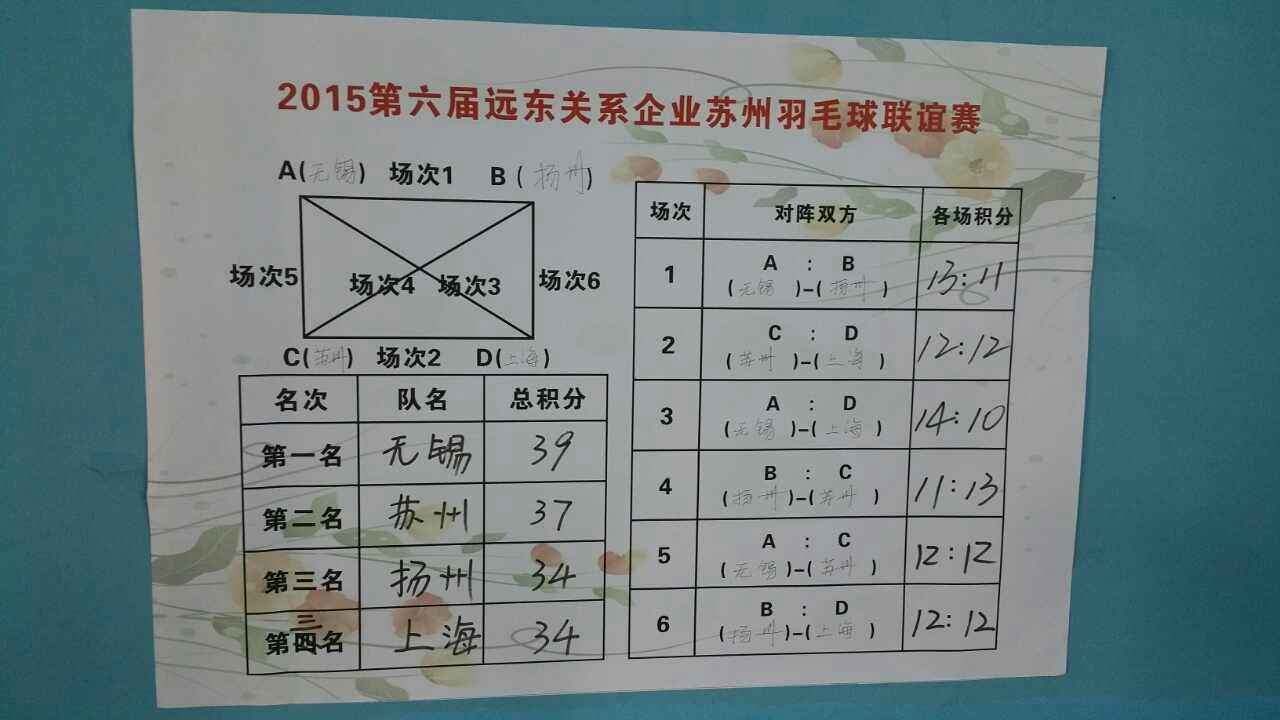 2015第六届远东关系企业苏州羽毛球联谊赛
A(无锡) 场次1 B(扬州)
场次5 场次4 场次3 场次6
C(苏州) 场次2 D(上海)
名次 队名 总积分
第一名 无锡 39
第二名 苏州 37
第三名 扬州 34
三
第四名 上海 34
场次 对阵双方 各场积分
1 A : B 13:11
(无锡)-(扬州)
2 C : D 12:12
(苏州)-(上海)
3 A : D 14:10
(无锡)-(上海)
4 B : C 11:13
(扬州)-(苏州)
5 A : C 12:12
(无锡)-(苏州)
6 B : D 12:12
(扬州)-(上海)